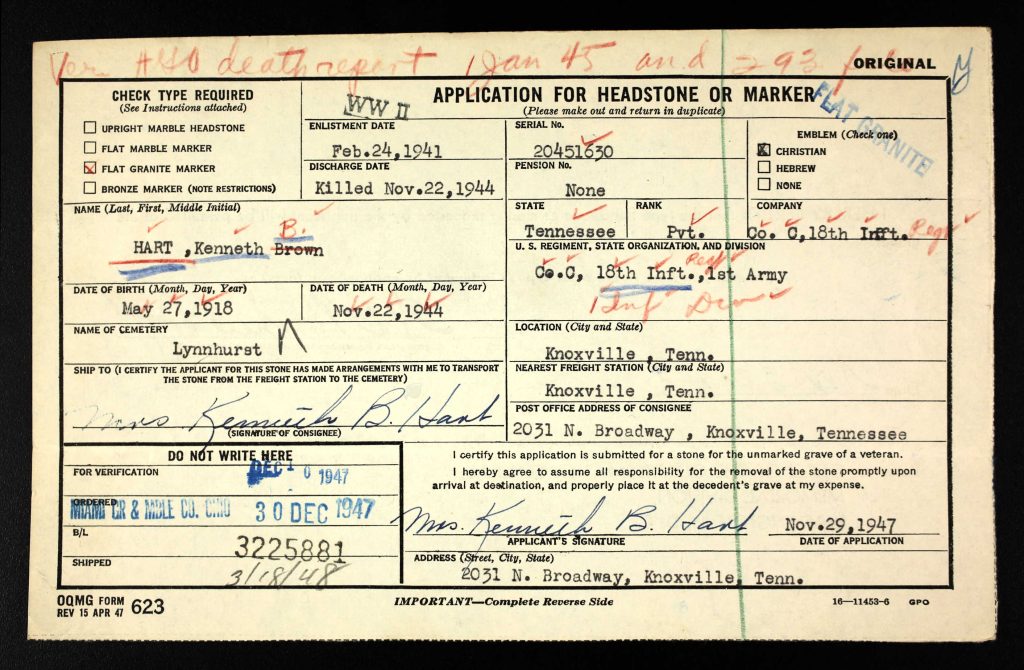 Per AGO death report 1 Jan 45 and 293 file
ORIGINAL
CHECK TYPE REQUIRED
(See Instructions attached)
UPRIGHT MARBLE HEADSTONE
FLAT MARBLE MARKER
X FLAT GRANITE MARKER
BRONZE MARKER (NOTE RESTRICTIONS)
WW II
APPLICATION FOR HEADSTONE OR MARKER
(Please make out and return in duplicate)
FLAT GRANITE
ENLISTMENT DATE
Feb.24,1941
DISCHARGE DATE
Killed Nov.22,1944
SERIAL No.
20451630
PENSION No.
None
EMBLEM (Check one)
X CHRISTIAN
HEBREW
NONE
NAME (Last, First, Middle Initial)
B.
HART ,Kenneth Brown
STATE
Tennessee
RANK
Pvt.
COMPANY
Co. C,18th Inft. Regt
U. S. REGIMENT, STATE ORGANIZATION, AND DIVISION
Regt
Co.C, 18th Inft.,1st Army
1 Inf Div
DATE OF BIRTH (Month, Day, Year)
May 27,1918
DATE OF DEATH (Month, Day, Year)
Nov.22,1944
NAME OF CEMETERY
Lynnhurst
LOCATION (City and State)
Knoxville , Tenn.
SHIP TO (I CERTIFY THE APPLICANT FOR THIS STONE HAS MADE ARRANGEMENTS WITH ME TO TRANSPORT
THE STONE FROM THE FREIGHT STATION TO THE CEMETERY)
Mrs Kenneth B. Hart
(SIGNATURE OF CONSIGNEE)
NEAREST FREIGHT STATION (City and State)
Knoxville , Tenn.
POST OFFICE ADDRESS OF CONSIGNEE
2031 N. Broadway , Knoxville, Tennessee
DO NOT WRITE HERE
FOR VERIFICATION
DEC 1 0 1947
ORDERED
MIAMI GR & MBLE CO. OHIO 30 DEC 1947
B/L
3225881
SHIPPED
3/18/48
I certify this application is submitted for a stone for the unmarked grave of a veteran.
I hereby agree to assume all responsibility for the removal of the stone promptly upon
arrival at destination, and properly place it at the decedent's grave at my expense.
Mrs. Kenneth B. Hart
APPLICANT'S SIGNATURE
Nov.29,1947
DATE OF APPLICATION
ADDRESS (Street, City, State)
2031 N. Broadway, Knoxville, Tenn.
OQMG FORM
REV 15 APR 47 623
IMPORTANT—Complete Reverse Side
16—11453-6 GPO